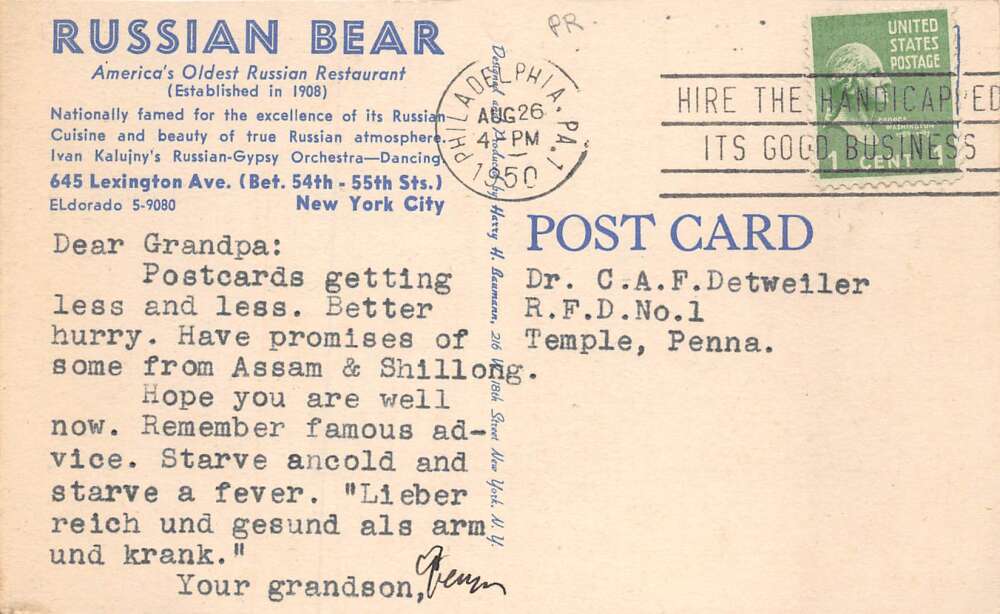 PR
RUSSIAN BEAR
America's Oldest Russian Restaurant
(Established in 1908)
Nationally famed for the excellence of its Russian
Cuisine and beauty of true Russian atmosphere.
Ivan Kalujny's Russian-Gypsy Orchestra—Dancing
645 Lexington Ave. (Bet. 54th - 55th Sts.)
ELdorado 5-9080 New York City
PHILADELPHIA, PA. 1
AUG 26
4 - PM
1950
HIRE THE HANDICAPPED
ITS GOOD BUSINESS
UNITED
STATES
POSTAGE
GEORGE
WASHINGTON
1 CENT
Designed and Produced by Harry H. Baumann, 216 W. 18th Street New York, N. Y.
POST CARD
Dear Grandpa:
Postcards getting
less and less. Better
hurry. Have promises of
some from Assam & Shillong.
Hope you are well
now. Remember famous ad-
vice. Starve ancold and
starve a fever. "Lieber
reich und gesund als arm
und krank."
Your grandson,
Dr. C.A.F.Detweiler
R.F.D.No.1
Temple, Penna.